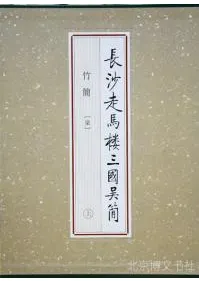 長沙走馬樓三國吳簡
竹簡
㊤
北京博文书社